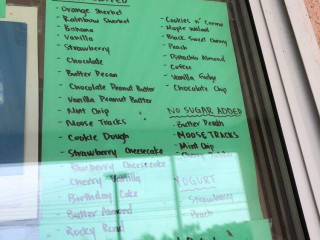 - Orange Sherbet
- Rainbow Sherbet
- Banana
- Vanilla
- Strawberry
- Chocolate
- Butter Pecan
- Chocolate Peanut Butter
- Vanilla Peanut Butter
- Mint Chip
- Moose Tracks
- Cookie Dough
- Strawberry Cheesecake
- Blueberry Cheesecake
- Cherry Vanilla
- Birthday Cake
- Butter Almond
- Rocky Road
- Cookies n' Creme
- Maple Walnut
- Black Sweet Cherry
- Peach
- Pistachio Almond
- Coffee
- Vanilla Fudge
- Chocolate Chip
NO SUGAR ADDED
- Butter Pecan
- MOOSE TRACKS
- Mint Chip
YOGURT
Strawberry
Peach